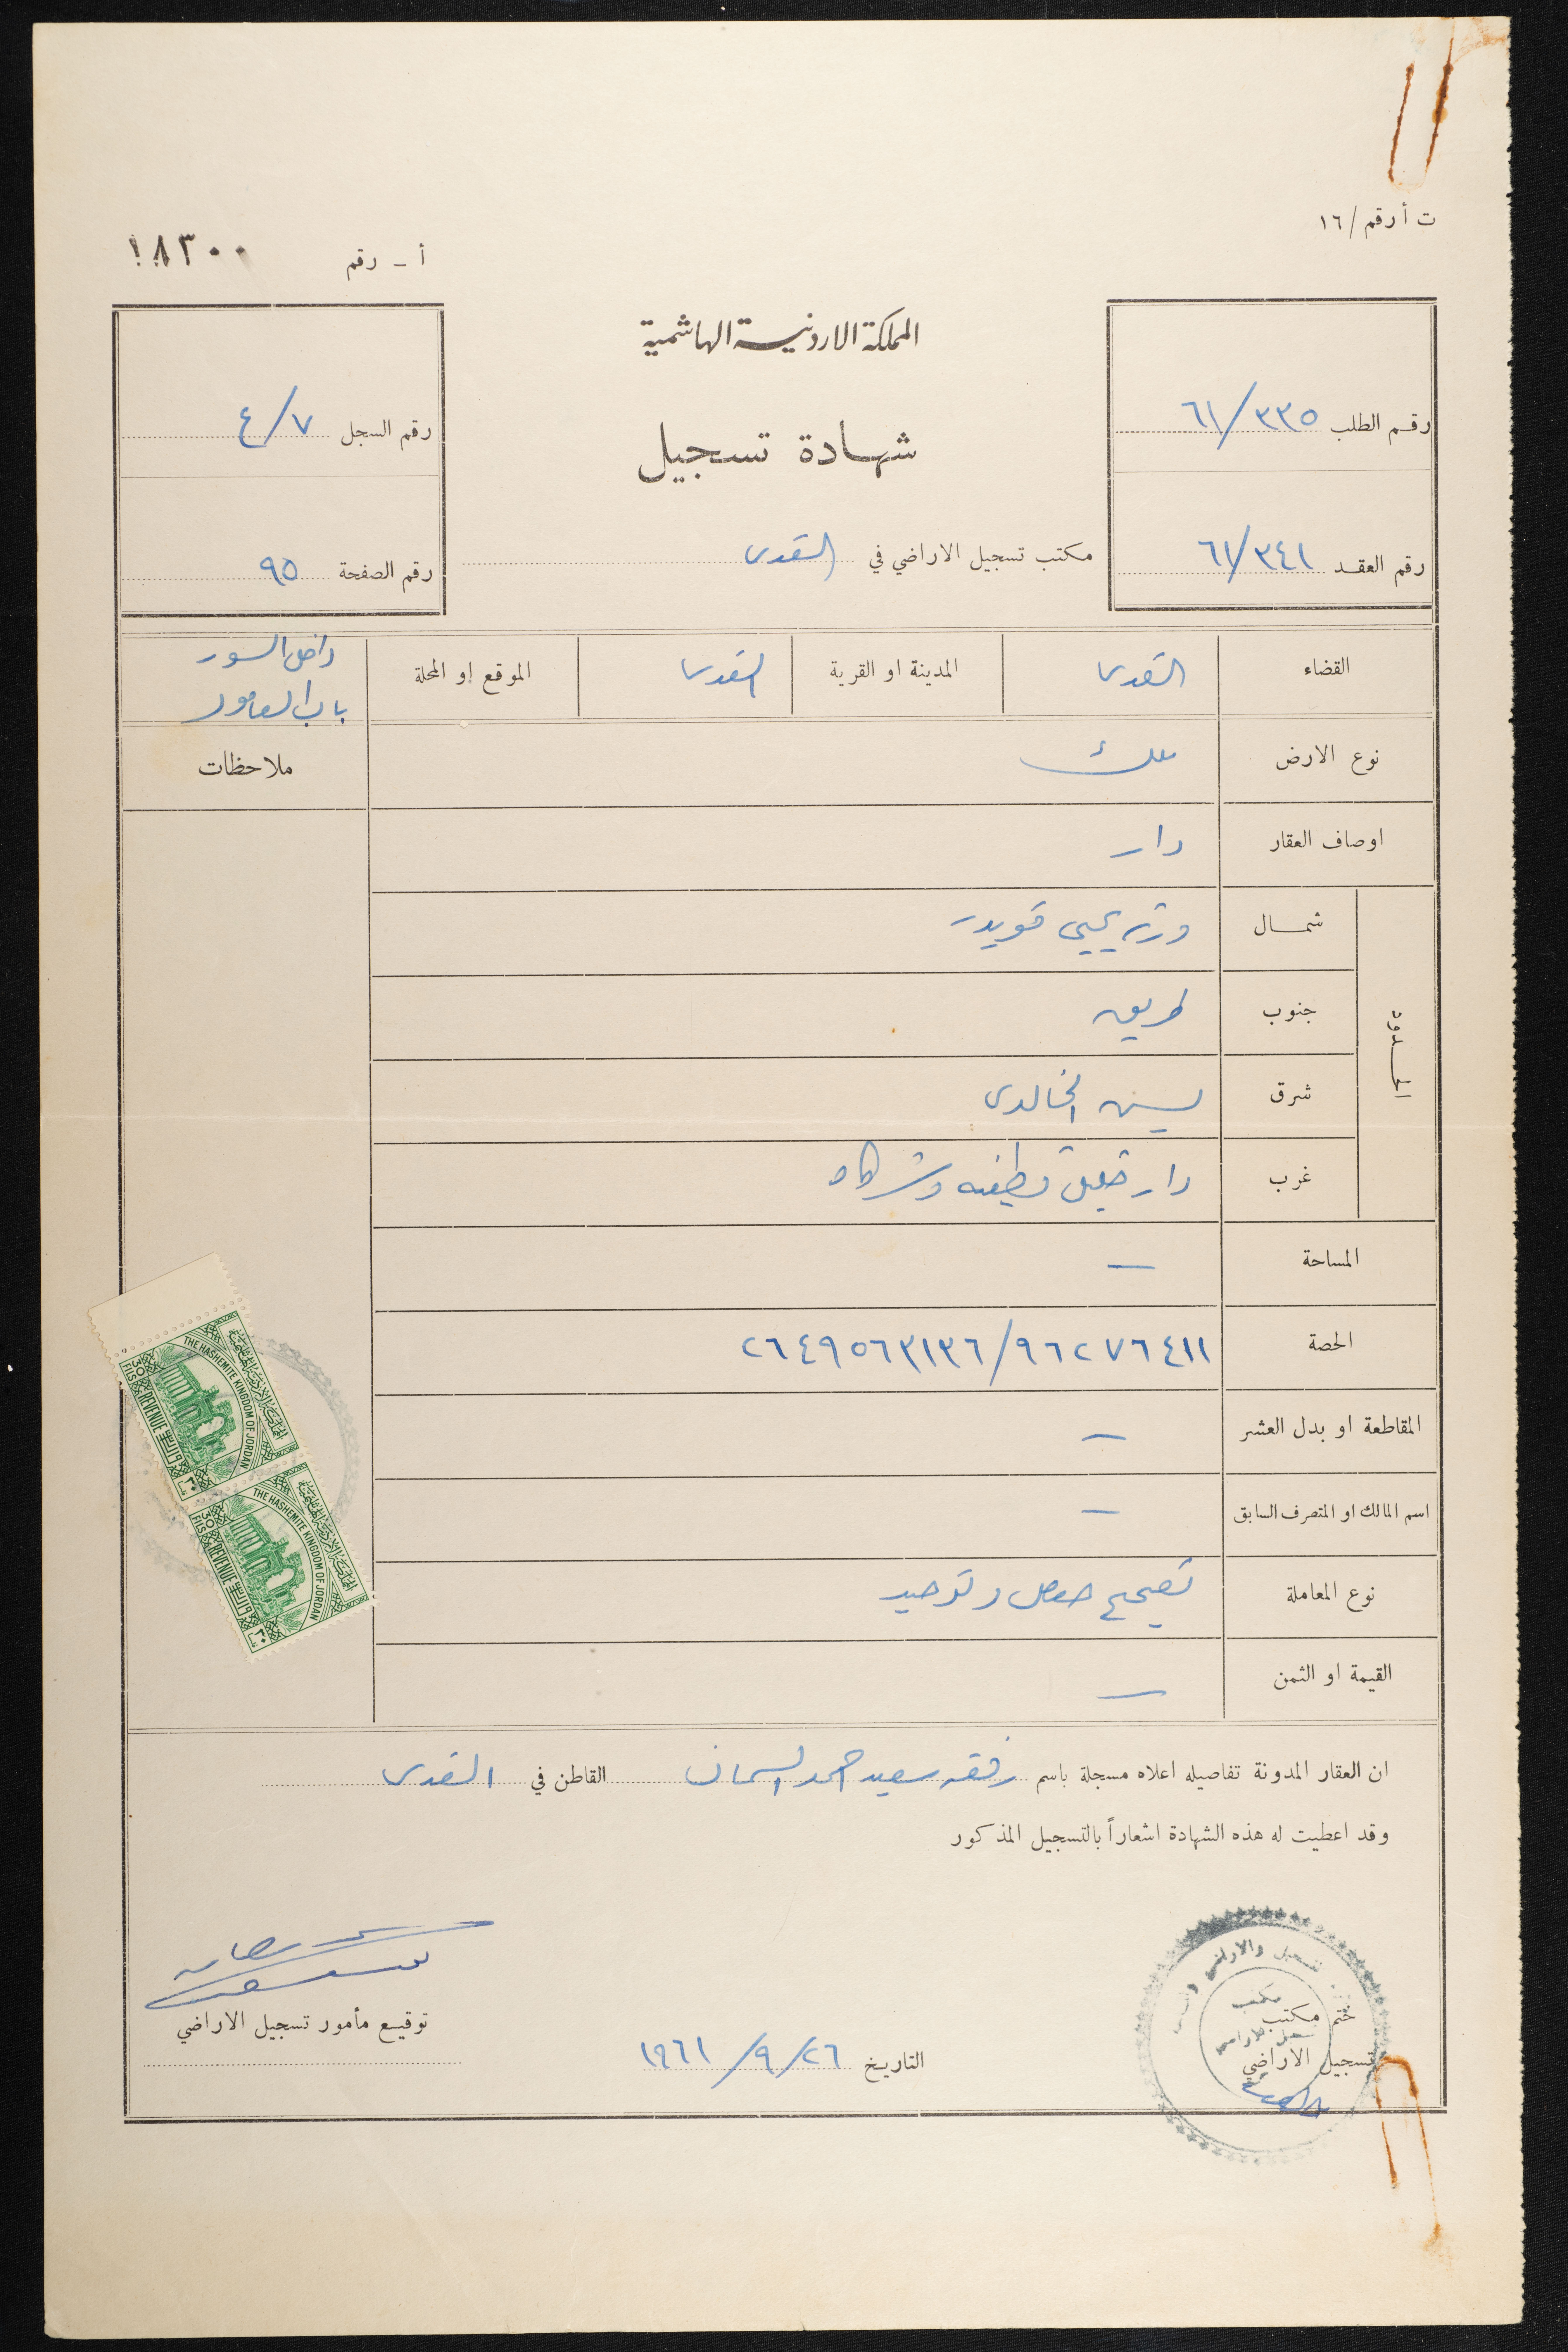 ت أ رقم / ١٦
أ – رقم ١٨٣٠٠
المملكة الاردنية الهاشمية
شهادة تسجيل
رقم الطلب ٦١/٣٣٥
رقم العقد ٦١/٣٤١
رقم السجل ٤/٧
رقم الصفحة ٩٥
مكتب تسجيل الاراضي في القدس
القضاء القدس المدينة او القرية القدس الموقع او المحلة داخل السور باب العامود
نوع الارض ملك
ملاحظات
اوصاف العقار دار
الحدود
شمال ورثة يحيى قويدر
جنوب طريق
شرق يسين الخالدي
غرب دار خليل قطينه وشركاه
المساحة —
الحصة ٢٦٤٩٥٦٣١٣٦/٩٦٢٧٦٤١١
المقاطعة او بدل العشر —
اسم المالك او المتصرف السابق —
نوع المعاملة تصحيح حصص وتوحيد
القيمة او الثمن —
THE HASHEMITE KINGDOM OF JORDAN
المملكة الاردنية الهاشمية
30 FILS REVENUE
THE HASHEMITE KINGDOM OF JORDAN
المملكة الاردنية الهاشمية
30 FILS REVENUE
ان العقار المدونة تفاصيله اعلاه مسجلة باسم رفقه سعيد احمد السمان القاطن في القدس
وقد اعطيت له هذه الشهادة اشعاراً بالتسجيل المذكور
ختم مكتب
تسجيل الاراضي
التاريخ ٢٦/٩/١٩٦١
توقيع مأمور تسجيل الاراضي